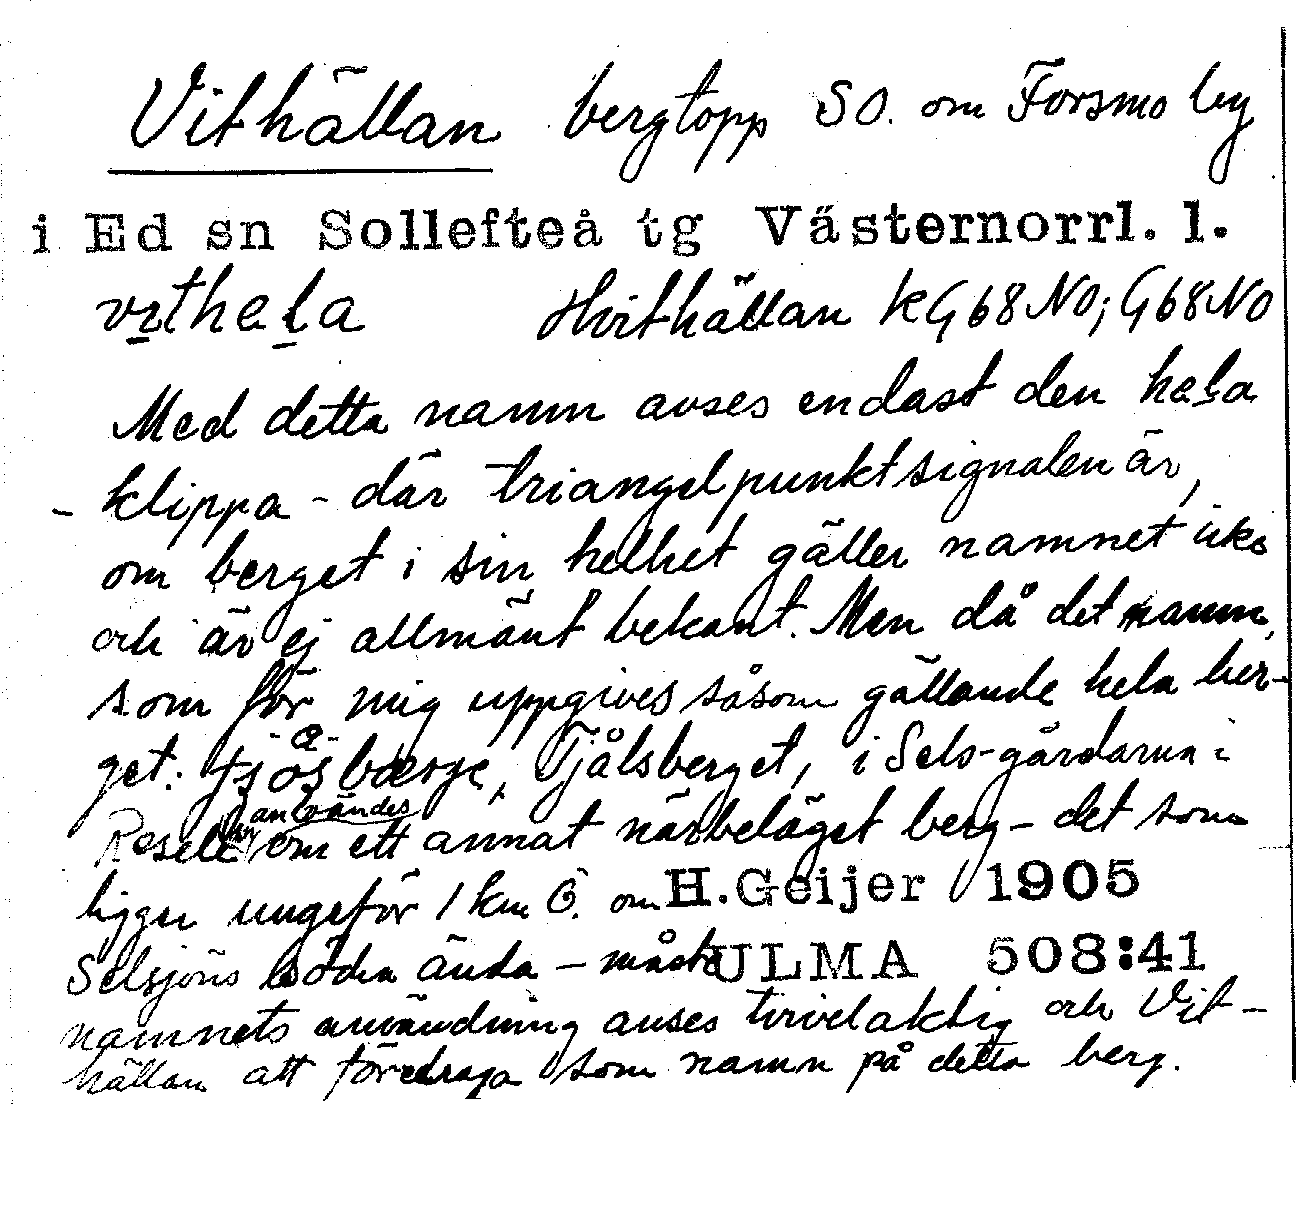 Vithällan bergtopp SO. om Forsmo by
i Ed sn Sollefteå tg Västernorrl. l.
Hvithällan k G68NO; G68NO
Med detta namn avses endast den
- klippa - där triangelpunktsignalen är,
om berget i sin helhet gäller namnet icke
och är ej allmänt bekant. Men då det namn,
som för mig uppgives såsom gällande hela ber-
get: Tjålsberget, i Sels-gårdarna i
Resele användes
om ett annat närbeläget berg - det som
ligger ungefär 1 km Ö. om H. Geijer 1905
Selsjöns södra ända - måste ULMA 508:41
namnets användning anses tvivelaktig och Vit-
hällan att föredraga som namn på detta berg.